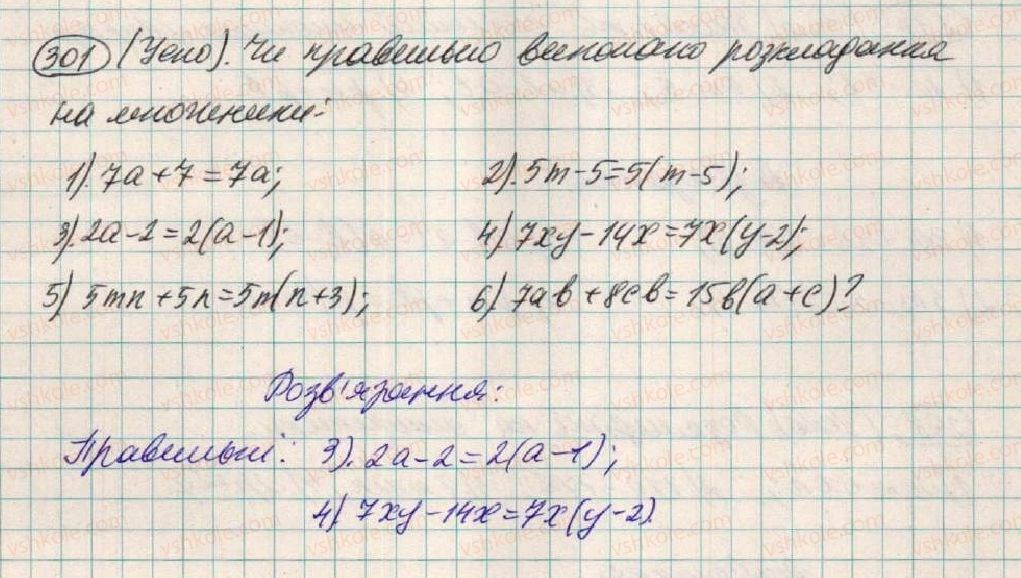 301 (Усно). Чи правильно виконано розкладання
на множники:
1) 7a + 7 = 7a; 2) 5m - 5 = 5(m - 5);
3) 2a - 2 = 2(a - 1); 4) 7xy - 14x = 7x(y - 2);
5) 5mn + 5n = 5n(n + 3); 6) 7ab + 8cb = 15b(a + c)?
Розв'язання:
Правильні: 3) 2a - 2 = 2(a - 1);
4) 7xy - 14x = 7x(y - 2).